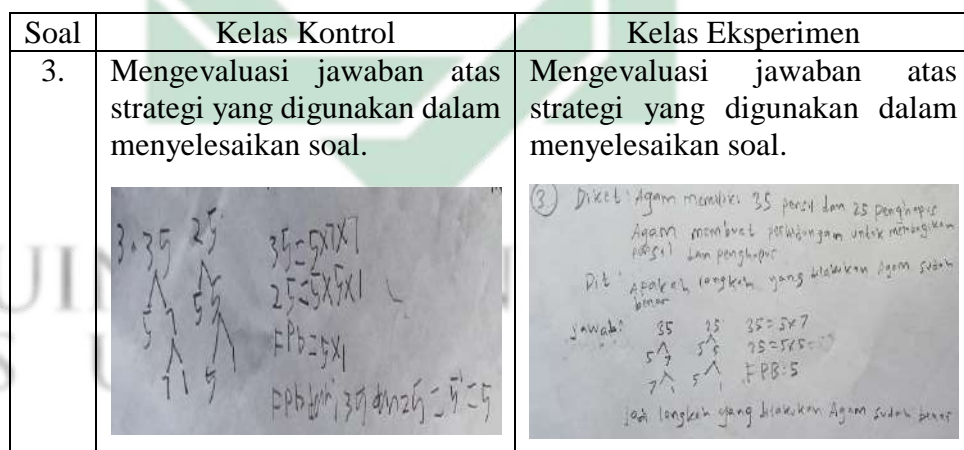 Soal Kelas Kontrol Kelas Eksperimen
3. Mengevaluasi jawaban atas
strategi yang digunakan dalam
menyelesaikan soal.
3. 35 25
5 7 5 5
7 1 5
35=5x7x7
25=5x5x1
FPb=5x1
FPb dari 35 dan 25 = 5 = 5
Mengevaluasi jawaban atas
strategi yang digunakan dalam
menyelesaikan soal.
3) Diket: Agam memiliki 35 pensil dan 25 penghapus
Agam membuat perhitungan untuk membagikan
pensil dan penghapus
Dit: Apakah langkah yang dilakukan Agam sudah
benar
Jawab: 35 25 35=5x7
5 7 5 5 25=5x5
7 1 5 1 FPB:5
jadi langkah yang dilakukan Agam sudah benar